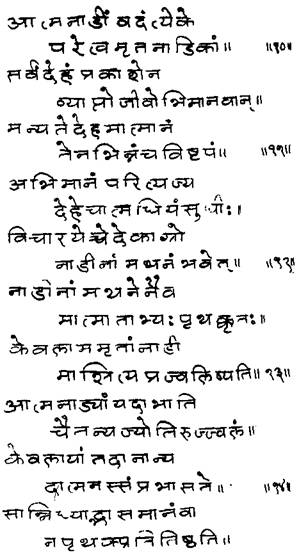 आत्मनाडीं वदंत्येके
परेत्वमृतनाडिकां॥ ॥१०॥
सर्वदेहं प्रकाशेन
व्याप्तो जीवोभिमानवान्॥
मन्यते देहमात्मानं
तेन भिन्नंच विष्टपं॥ ॥११॥
अभिमानं परित्यज्य
देहेचात्मधियं सुधीः।
विचारयेच्चेदेकाग्रो
नाडीनां मथनं भवेत्॥ ॥१२॥
नाडीनां मथनेनैव
मात्माताभ्यः पृथक्कृतः॥
केवलाममृतांनाडी
माश्रित्य प्रज्वलिष्यति॥ ॥१३॥
आत्मनाड्यां यदाभाति
चैतन्यज्योतिरुज्ज्वलं॥
केवलायां तदानान्य
दात्मनस्संप्रभासते॥ ॥१४॥
सान्निध्याद्भासमानंवा
न पृथक्प्रतितिष्ठति॥